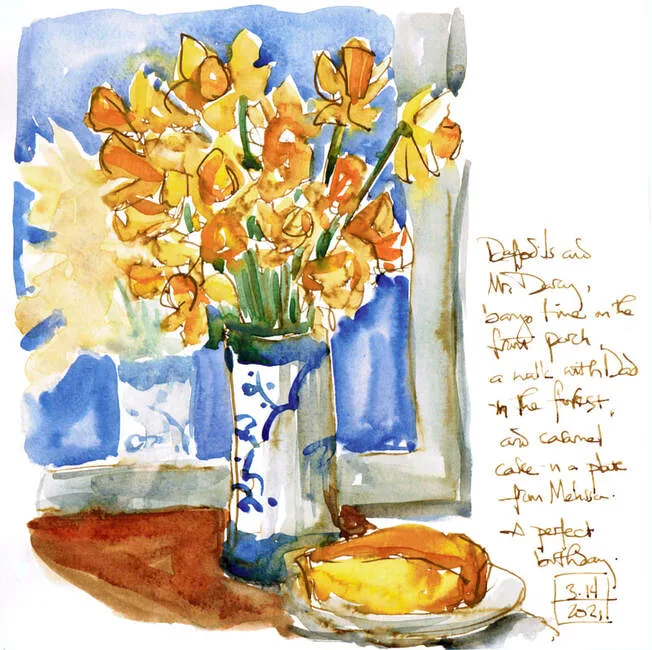 Daffodils and
Mr. Darcy,
banjo time on the
front porch,
a walk with Dad
in the forest,
and caramel
cake on a plate
from Melissa.
A perfect
birthday.
3.14
2021.